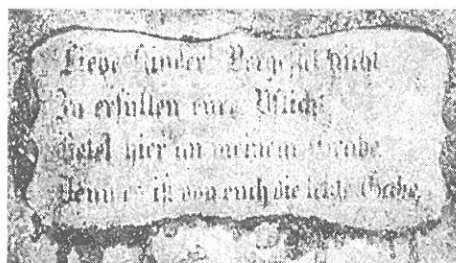 Liebe Kinder! Vergesset nicht
Zu erfüllen eure Pflicht,
Betet hier an meinem Grabe
Denn es ist von euch die letzte Gabe.